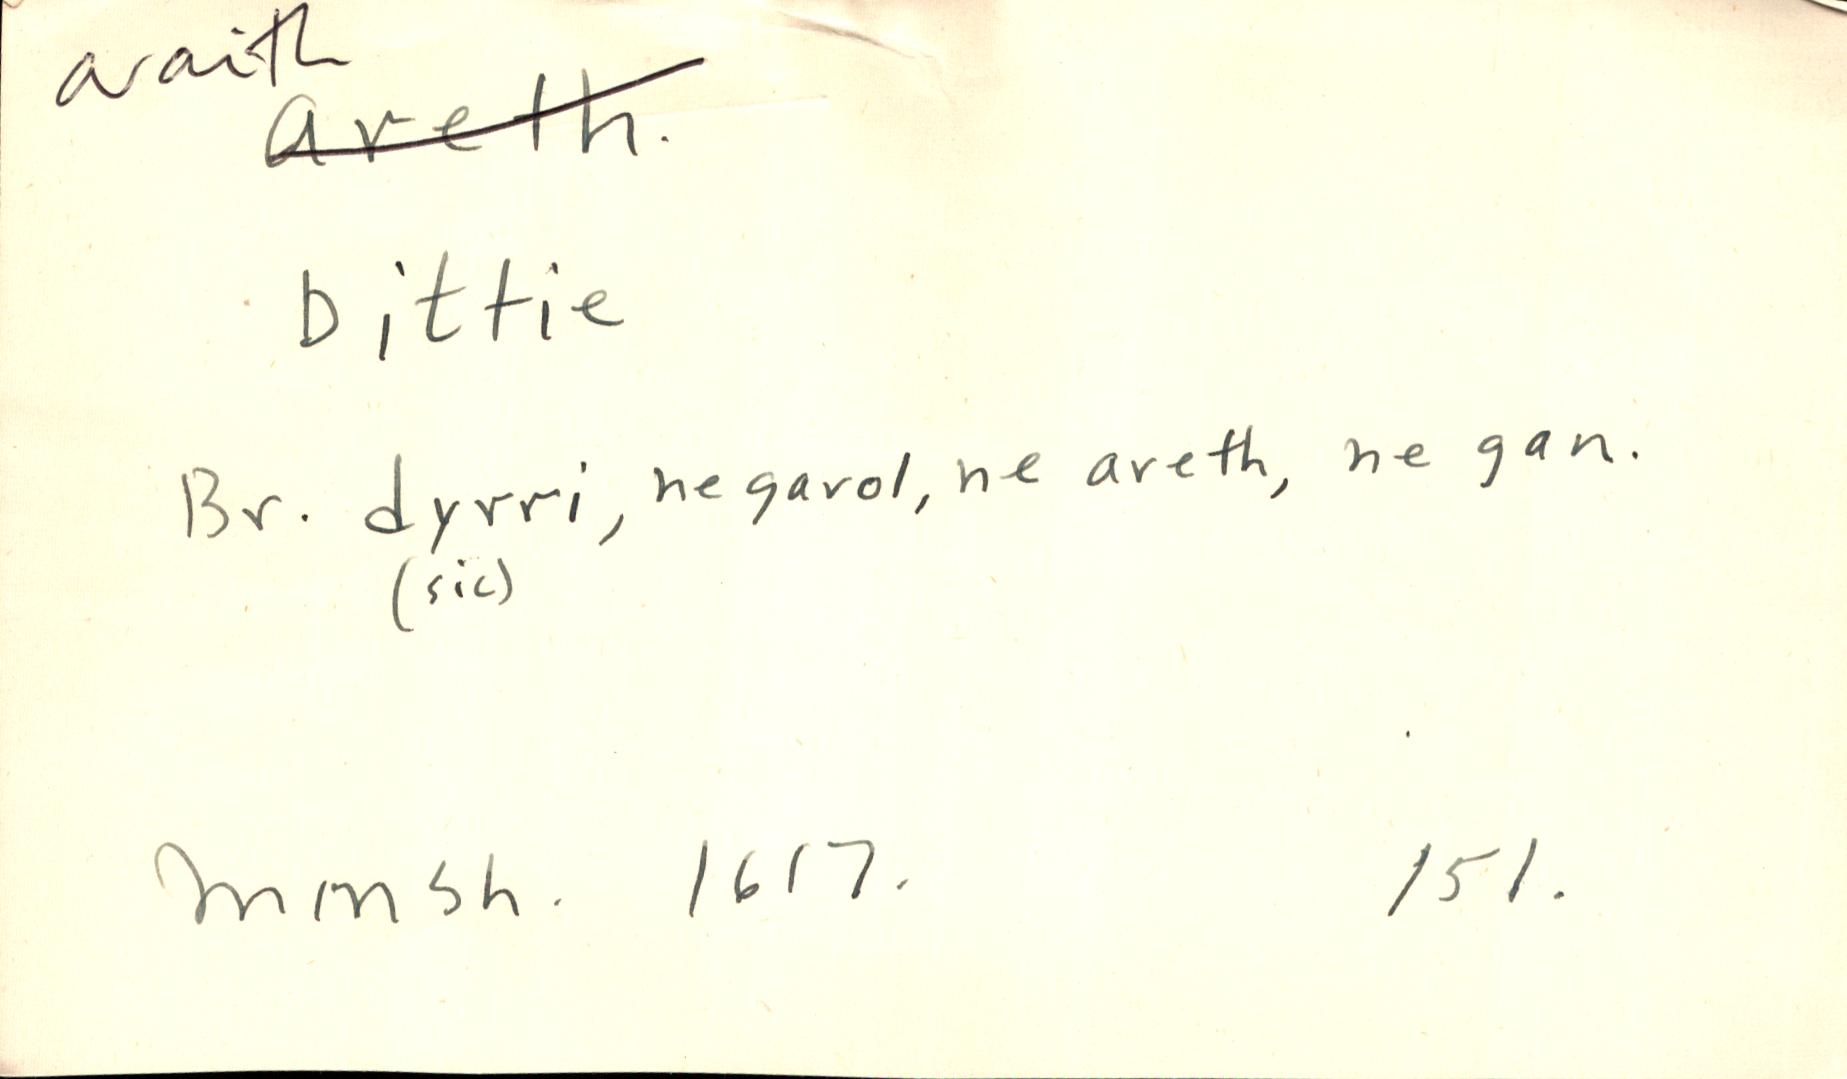 araith
areth.
Dittie
Br. dyrri, ne garol, ne areth, ne gan.
(sic)
Minsh. 1617. 151.